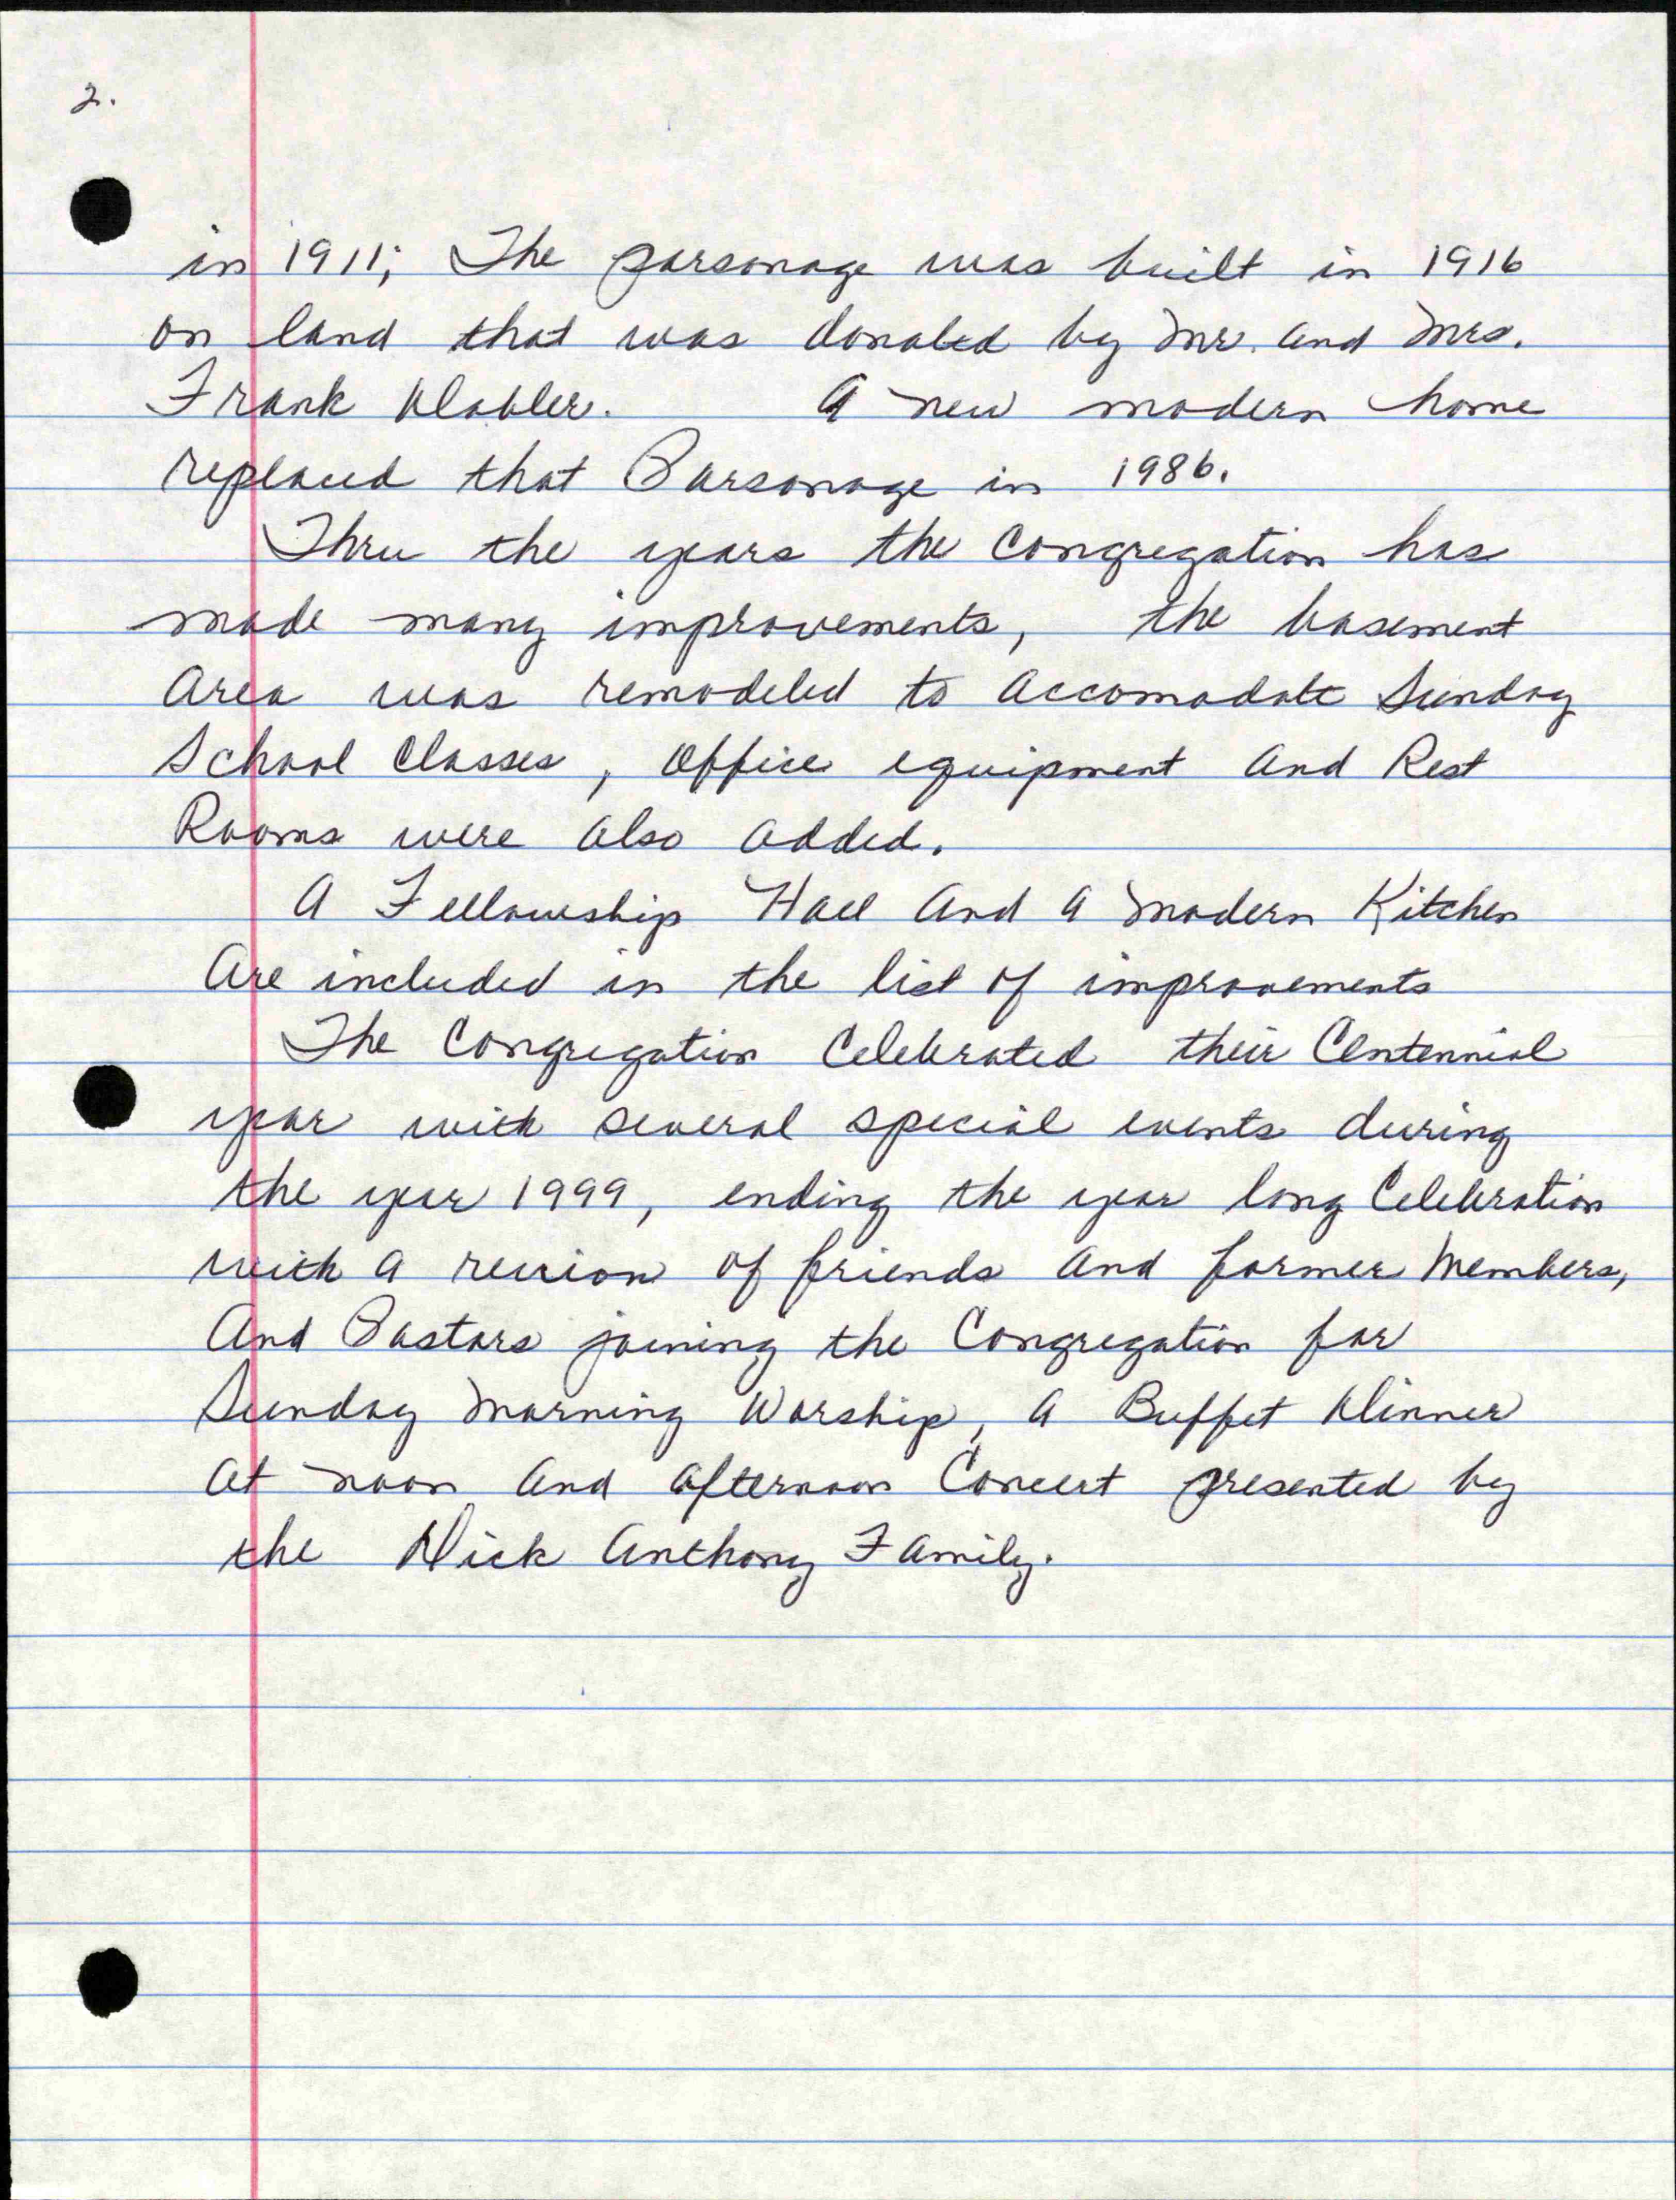 2.
in 1911; The parsonage was built in 1916
on land that was donated by Mr. and Mrs.
Frank Dabler. A new modern home
replaced that Parsonage in 1986.
Thru the years the Congregation has
made many improvements, the basement
area was remodeled to accomodate Sunday
School Classes, office equipment and Rest
Rooms were also added.
A Fellowship Hall and a Modern Kitchen
are included in the list of improvements
The Congregation Celebrated their Centennial
year with several special events during
the year 1999, ending the year long Celebration
with a reunion of friends and former Members,
And Pastors joining the Congregation for
Sunday Morning Worship, a Buffet Dinner
at noon and afternoon Concert presented by
the Dick Anthony Family.